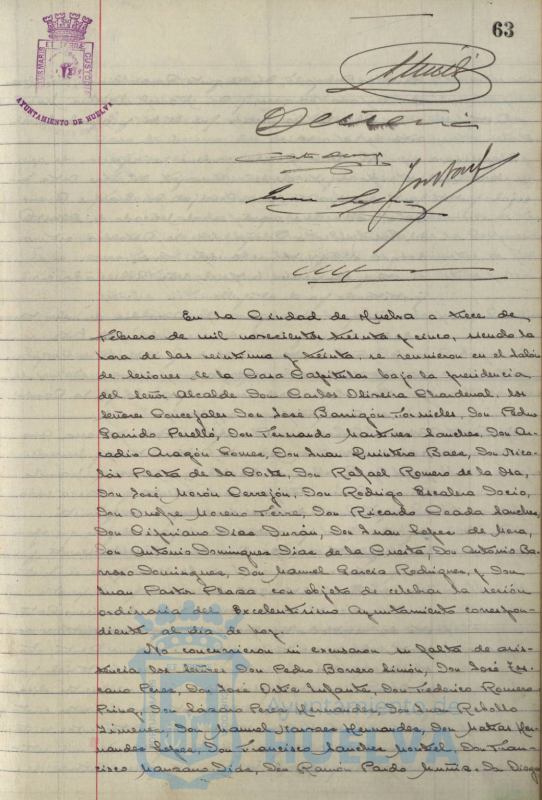 63
AYUNTAMIENTO DE HUELVA
En la Ciudad de Huelva a trece de
Febrero de mil novecientos treinta y cinco, siendo la
hora de las veintiuna y treinta, se reunieron en el Salón
de sesiones de la Casa Capitular bajo la presidencia
del Señor Alcalde Don Carlos Oliveira Chardenal, los
Señores Concejales Don José Barrigón Fornieles, Don Pedro
Garrido Perelló, Don Fernando Martinez Sanchez, Don Ar-
cadio Aragón Gomez, Don Juan Quintero Baez, Don Nico-
lás Plata de la Corte, Don Rafael Romero de la Osa,
Don José Morón Cerrejón, Don Rodrigo Escalera Socio,
Don Onofre Moreno Ferre, Don Ricardo Sanchez,
Don Cipriano Dias Durán, Don Juan Lopez de Mora,
Don Antonio Dominguez Dias de la Cuesta, Don Antonio Ba-
rroso Dominguez, Don Manuel García Rodriguez, y Don
Juan Pastor Plaza con objeto de celebrar la sesión
ordinaria del Excelentísimo Ayuntamiento correspon-
diente al dia de hoy.
No concurrieron ni excusaron su falta de asis-
tencia los señores Don Pedro Borrero Limón, Don José Es-
cano Pérez, Don José Ortiz Infante, Don Federico Romero
Don Lázaro Perez Hernandez, Don Juan Rebollo
Jimenez, Don Manuel Narvaez Hernandez, Don Matías Her-
nandez Lopez, Don Francisco Sanchez Montiel, Don Fran-
cisco Manzano Dias, Don Ramón Pardo Muñiz, Don Diego
Ayuntamiento de
HUELVA